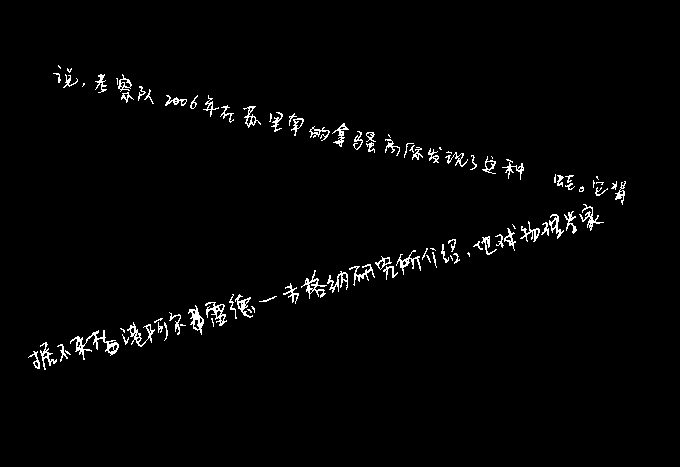 说，考察队2006年在苏里南的拿骚高原发现了这种 蛙。它背
据不来梅港阿尔弗雷德一韦格纳研究所介绍，地球物理学家